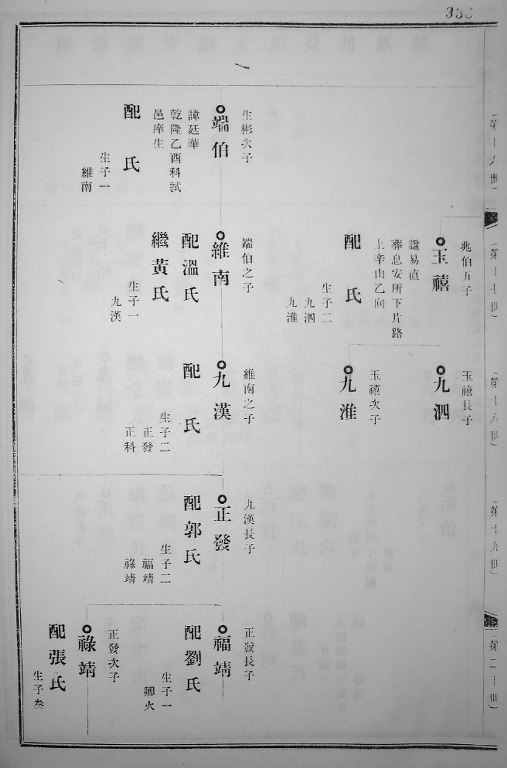 333
第十六世
第十七世
第十八世
第十九世
第二十世
兆伯五子
玉禧
諡易直
葬息安所下片路
上辛山乙向
配 氏
生子二
九泗
九淮
玉禧長子
九泗
玉禧次子
九淮
生彬次子
端伯
諱廷華
乾隆乙酉科試
邑庠生
配 氏
生子一
維南
端伯之子
維南
配溫氏
繼黃氏
生子一
九漢
維南之子
九漢
配 氏
生子二
正發
正科
九漢長子
正發
配郭氏
生子二
福靖
祿靖
正發長子
福靖
配劉氏
生子一
卿火
正發次子
祿靖
配張氏
生子叁